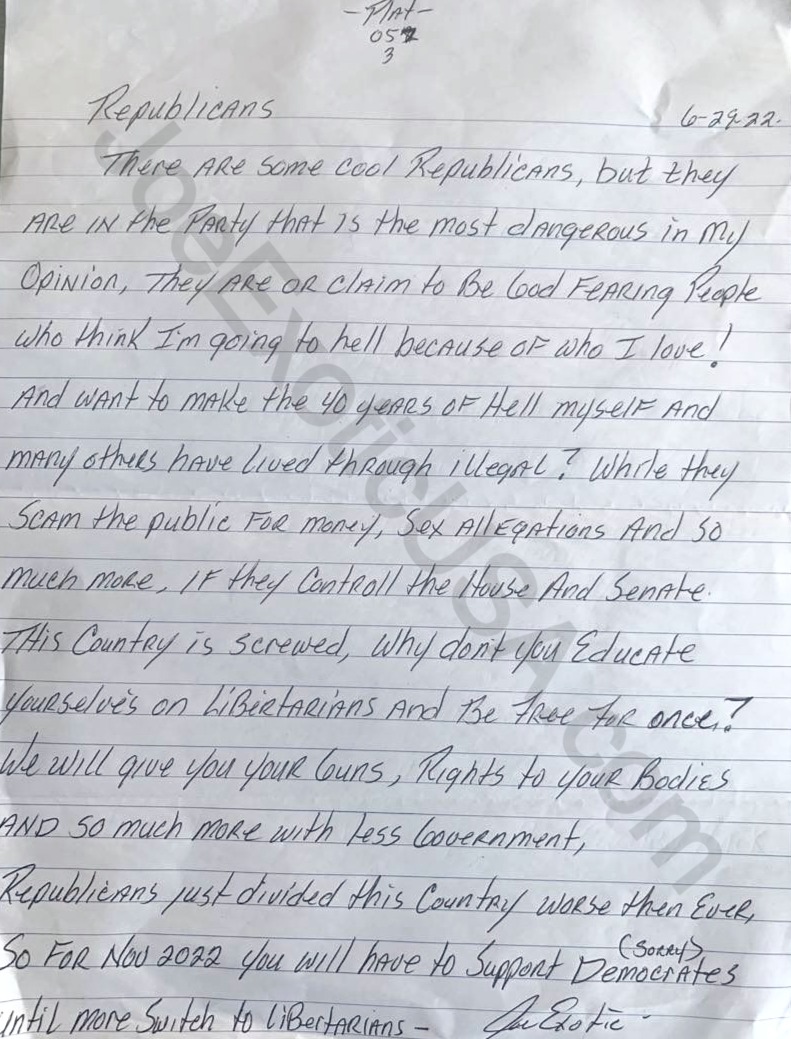 - Plat -
052
3
Republicans 6-29-22.
There are some cool Republicans, but they
are in the Party that is the most dangerous in my
Opinion, They are or claim to Be God Fearing People
who think I'm going to hell because of who I love!
And want to make the 40 years of Hell myself And
many others have lived through illegal? While they
Scam the public For money, Sex Allegations And so
much more, IF they Controll the House And Senate.
This Country is screwed, Why don't you Educate
yourselve's on Libertarians And Be Free For once,?
We will give you your Guns, Rights to your Bodies
AND so much more with Less Government,
Republicans just divided this Country worse then Ever,
So For Nov 2022 you will have to Support (Sorry) Democrates
until more Switch to Libertarians - Joe Exotic -
JoeExoticUSA.com